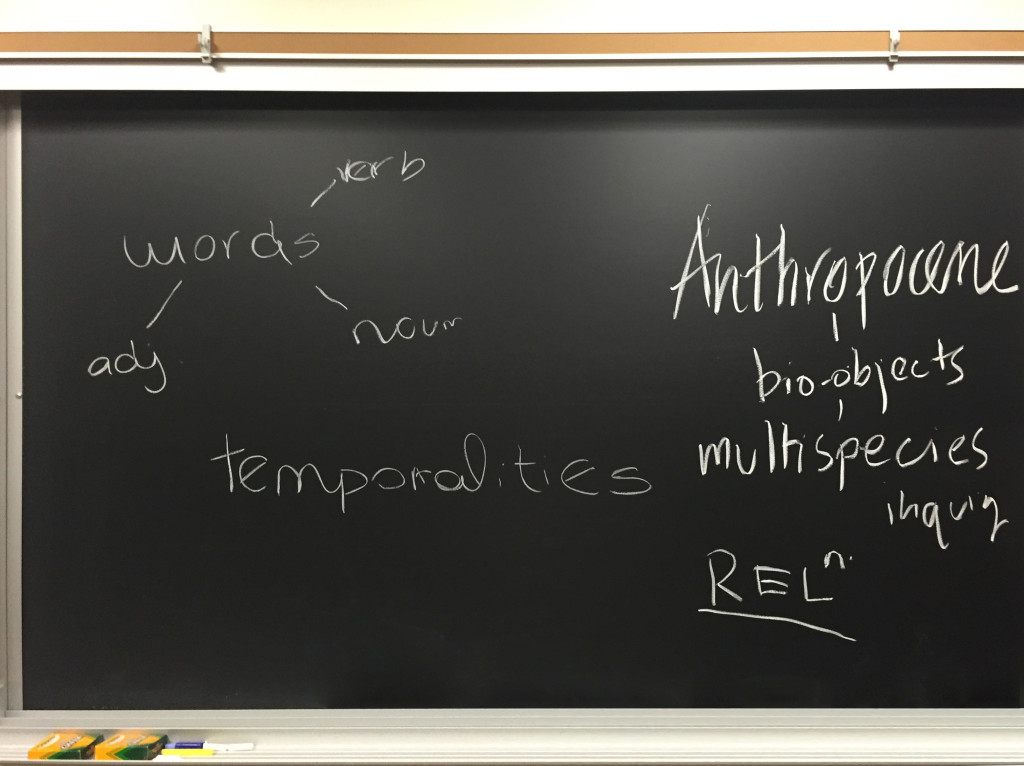 verb
words
adj
noun
temporalities
Anthropocene
bio-objects
multispecies
inquiry
RELⁿ·